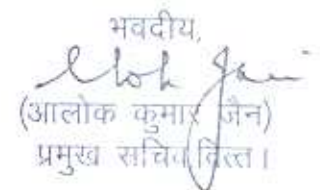 भवदीय,
Alok Jain
(आलोक कुमार जैन)
प्रमुख सचिव वित्त।